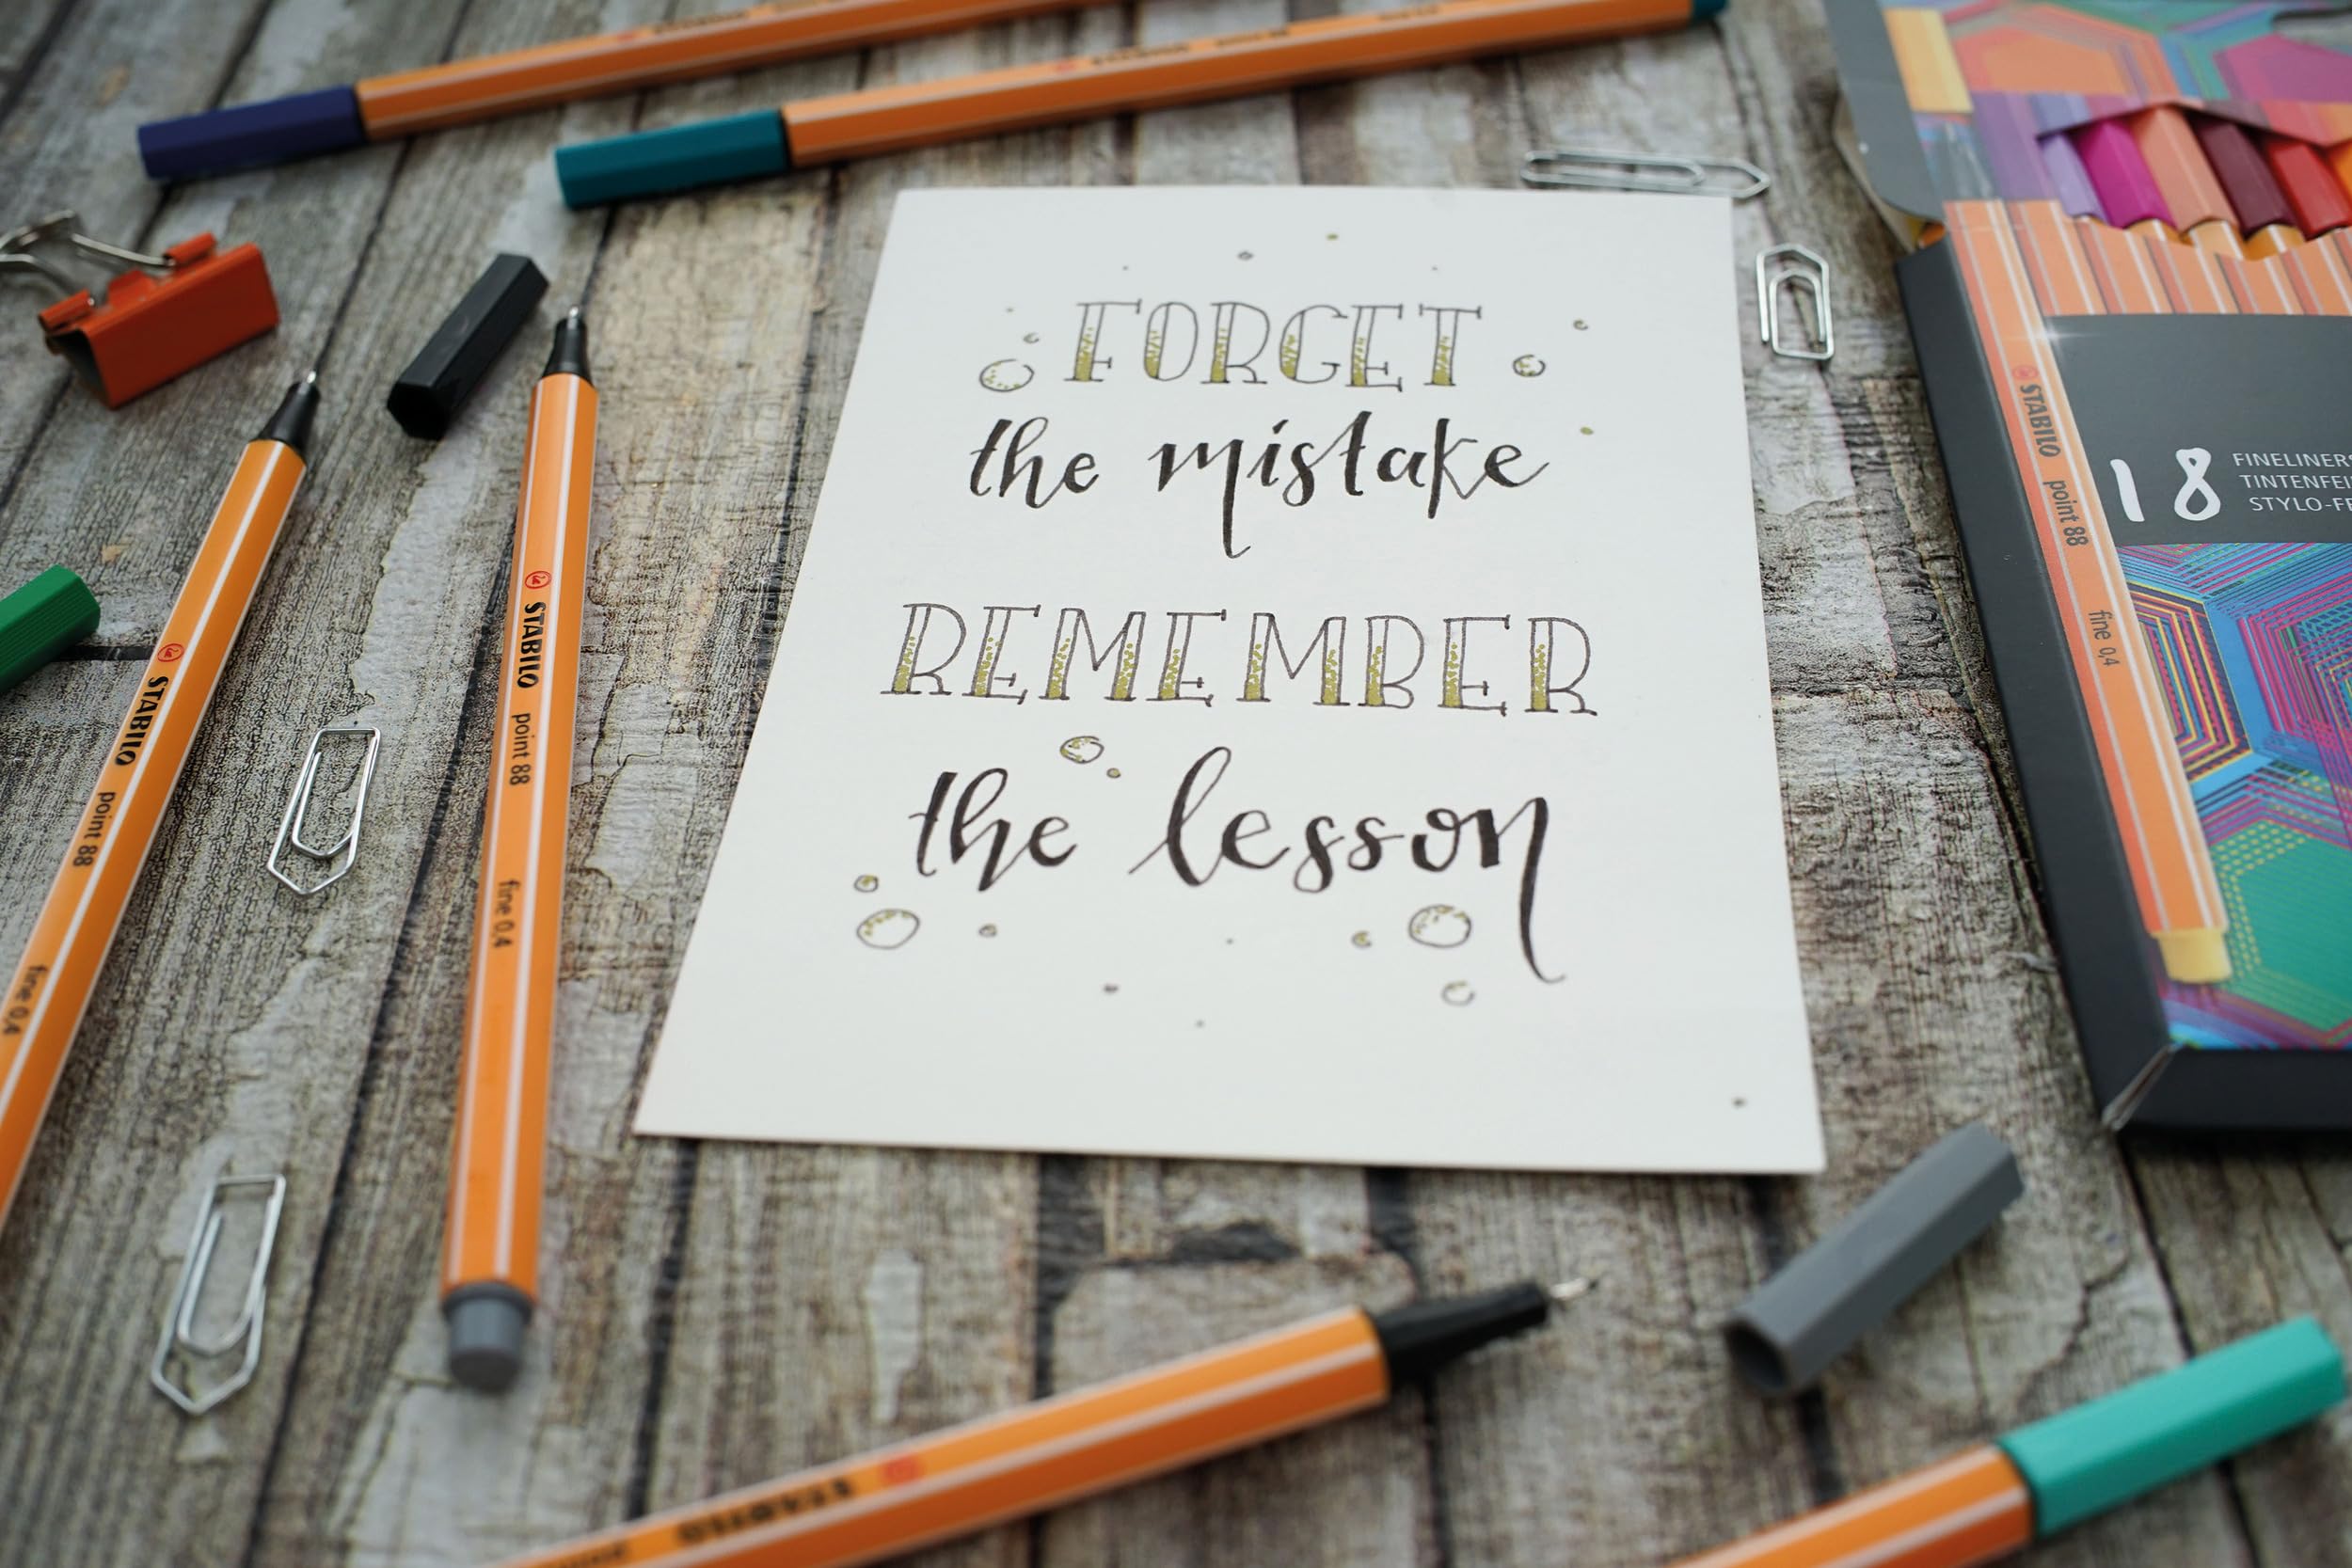 FORGET
the mistake
REMEMBER
the lesson
STABILO point 88 fine 0,4
STABILO point 88 fine 0,4
STABILO point 88 fine 0,4
18
FINELINERS